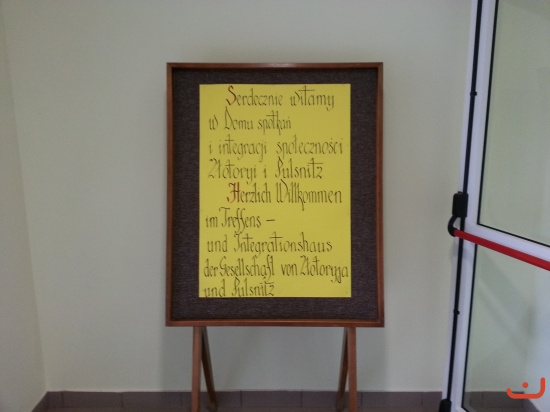 Serdecznie witamy
w Domu spotkań
i integracji społeczności
Złotoryi i Pulsnitz
Herzlich Willkommen
im Treffens –
und Integrationshaus
der Gesellschaft von Złotoryja
und Pulsnitz